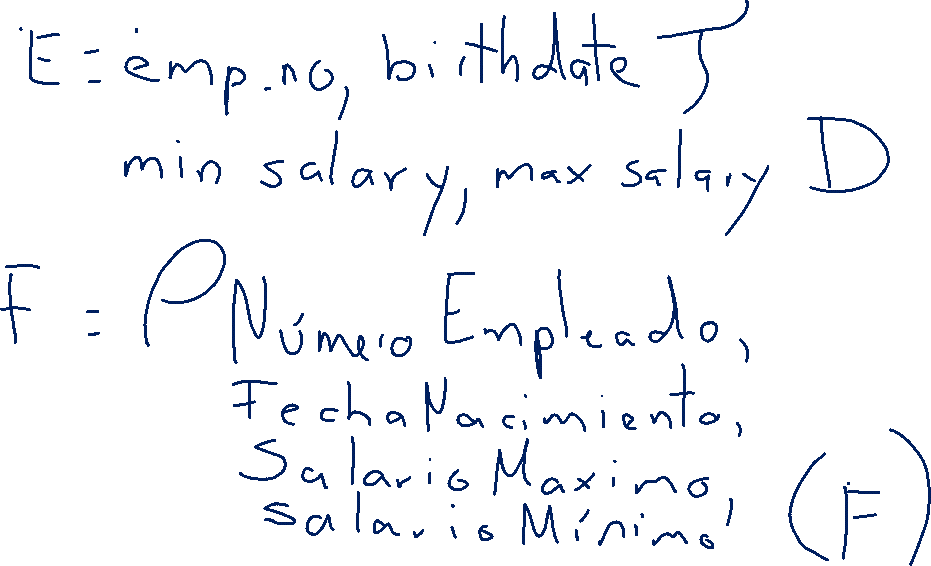 E = emp.no, birthdate ℱ
min salary, max salary D
F = ρ Número Empleado,
FechaNacimiento,
SalarioMaximo,
salarioMínimo (F)